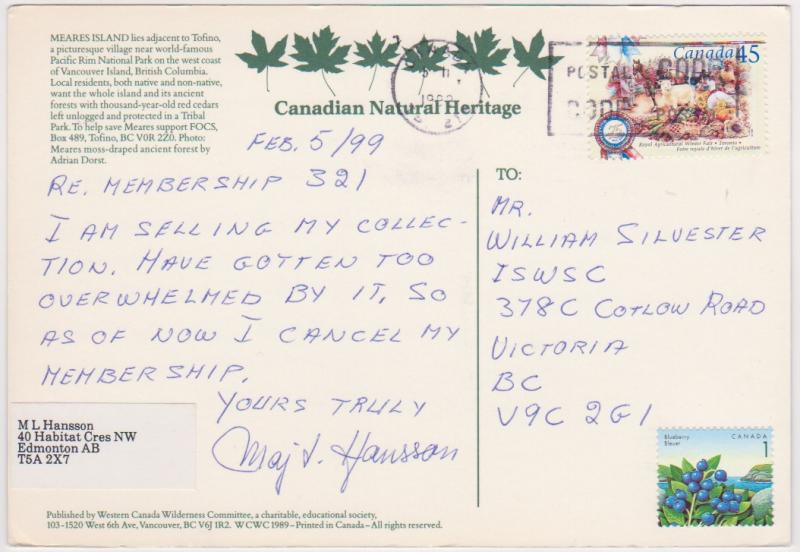 MEARES ISLAND lies adjacent to Tofino,
a picturesque village near world-famous
Pacific Rim National Park on the west coast
of Vancouver Island, British Columbia.
Local residents, both native and non-native,
want the whole island and its ancient
forests with thousand-year-old red cedars
left unlogged and protected in a Tribal
Park. To help save Meares support FOCS,
Box 489, Tofino, BC V0R 2Z0. Photo:
Meares moss-draped ancient forest by
Adrian Dorst.
Canadian Natural Heritage
POSTAL CODE
CODE
Canada 45
Royal Agricultural Winter Fair • Toronto
Foire royale d'hiver de l'agriculture
FEB. 5/99
RE. MEMBERSHIP 321
I AM SELLING MY COLLEC-
TION. HAVE GOTTEN TOO
OVERWHELMED BY IT, SO
AS OF NOW I CANCEL MY
MEMBERSHIP.
YOURS TRULY
Maj L. Hansson
M L Hansson
40 Habitat Cres NW
Edmonton AB
T5A 2X7
TO:
MR.
WILLIAM SILVESTER
ISWSC
378C COTLOW ROAD
VICTORIA
BC
V9C 2G1
Blueberry
Bleuet
CANADA
1
Published by Western Canada Wilderness Committee, a charitable, educational society,
103-1520 West 6th Ave, Vancouver, BC V6J 1R2. WCWC 1989–Printed in Canada–All rights reserved.